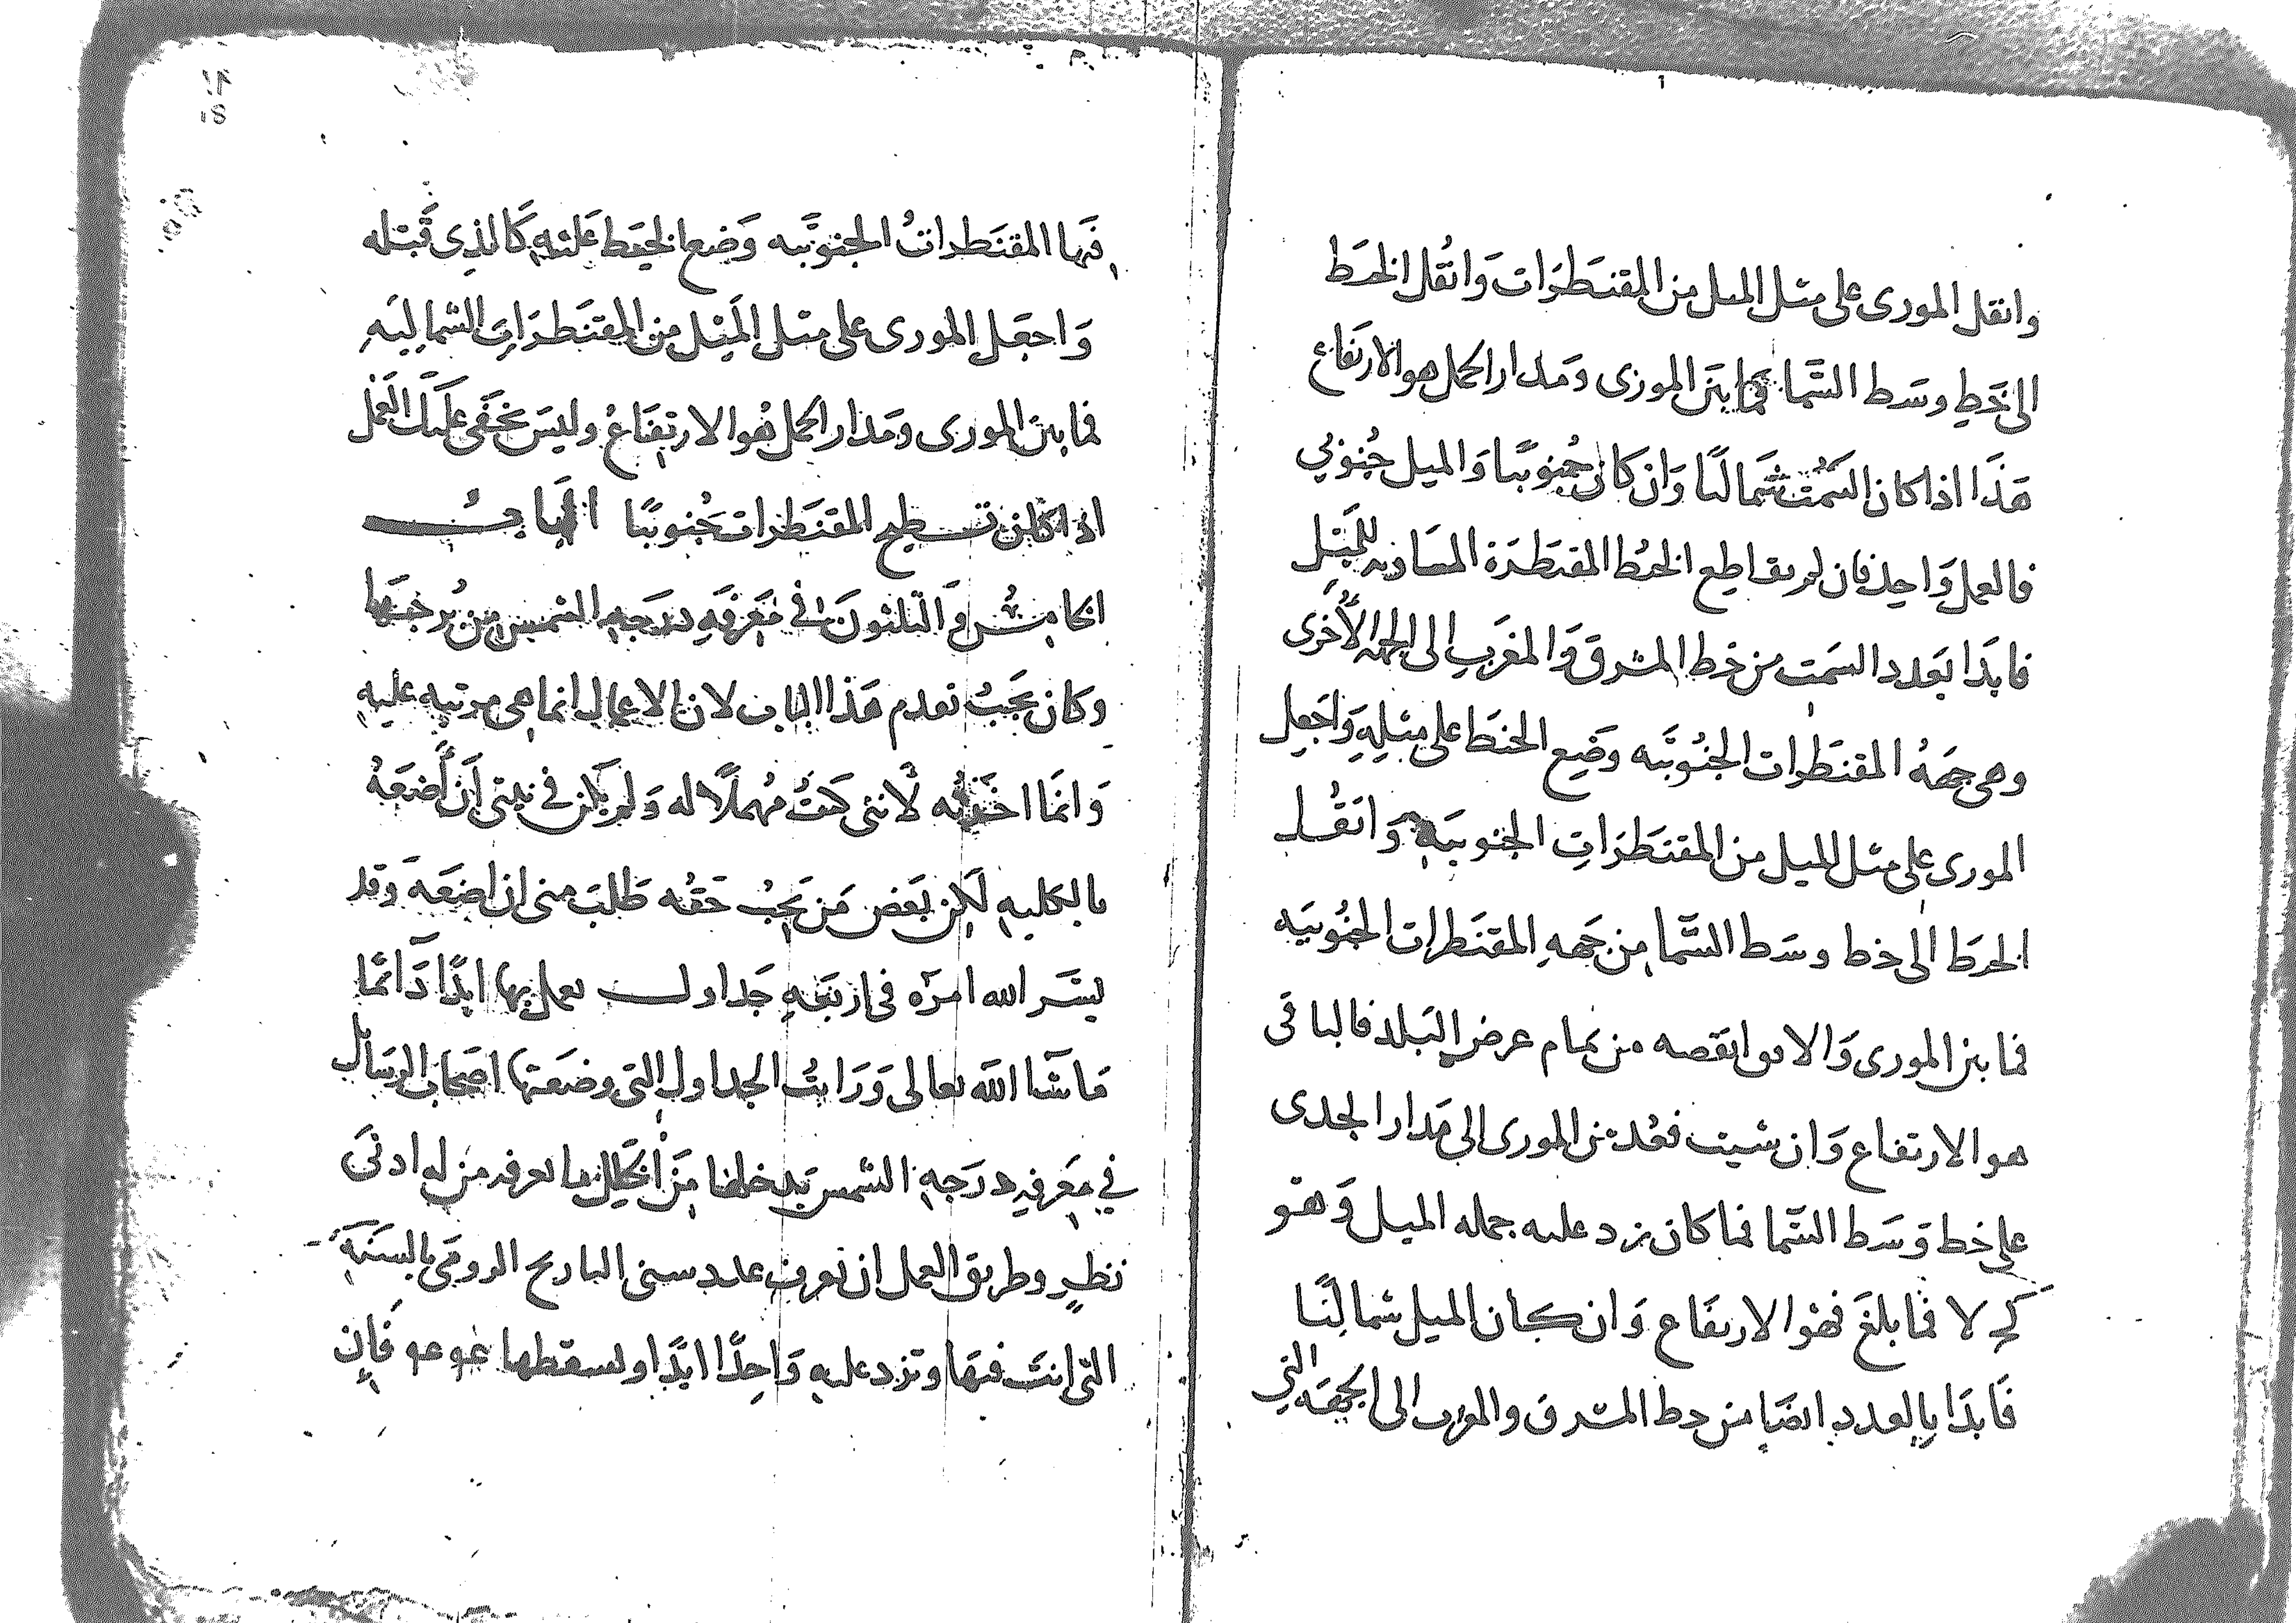 وانقل المورى على مثل الميل من المقنطرات وانقل الخيط
الى خط وسط السما فما بين المورى ومدار الحمل هو الارتفاع
هذا اذا كان السمت شماليا وان كان جنوبيا والميل جنوبي
فالعمل واحد فان لم يقاطع الخيط المقنطرة المساويه للميل
فابدا بعدد السمت من خط المشرق والمغرب الى الجهة الأخرى
وهى جهة المقنطرات الجنوبيه وضع الخيط على مثله واجعل
المورى على مثل الميل من المقنطرات الجنوبيه وانقل
الخيط الى خط وسط السما من جهة المقنطرات الجنوبيه
فما بين المورى والافق انقصه من تمام عرض البلد فالباقى
هو الارتفاع وان شيت فعد من المورى الى مدار الجدى
على خط وسط السما فما كان زد عليه جمله الميل وهو
كج لا فما بلغ فهو الارتفاع وان كان الميل شماليا
فابدا بالعدد ايضا من خط المشرق والمغرب الى الجهه التي
فيها المقنطرات الجنوبيه وضع الخيط عليه كالذى قبله
واجعل المورى على مثل الميل من المقنطرات الشماليه
فما بين المورى ومدار الحمل فهو الارتفاع وليس يخفى عليك العمل
اذا كان تسطيح المقنطرات جنوبيا الباب
الخامس والثلثون في معرفة درجة الشمس من برجها
وكان يجب تقدم هذا الباب لان الاعمال انما هى مرتبه عليه
وانما اخرته لانني كنت مهملا له ولم يكن في نيتى أن أضعه
بالكليه لكن بعض من يجب حقه طلب منى ان اضعه وقد
يسر الله امره فى اربعة جداول يعمل بها ابدا دائما
ما شا الله تعالى ورايت الجداول التى وضعتها اصحاب الرسائل
في معرفة درجة الشمس يدخلها من الخلل ما يعرفه من له ادنى
نظر وطريق العمل ان تعرف عدد سنى التاريخ الرومى بالسنة
التى انت فيها وتزد عليه واحدا ابدا وتسقطها فان